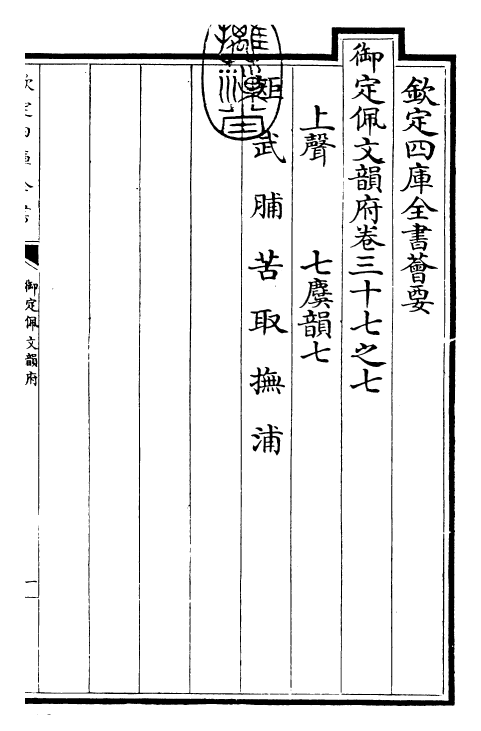 欽定四庫全書薈要
御定佩文韻府卷三十七之七
上聲　七麌韻七
矩武脯苦取撫浦
欽定四庫全書
御定佩文韻府
一